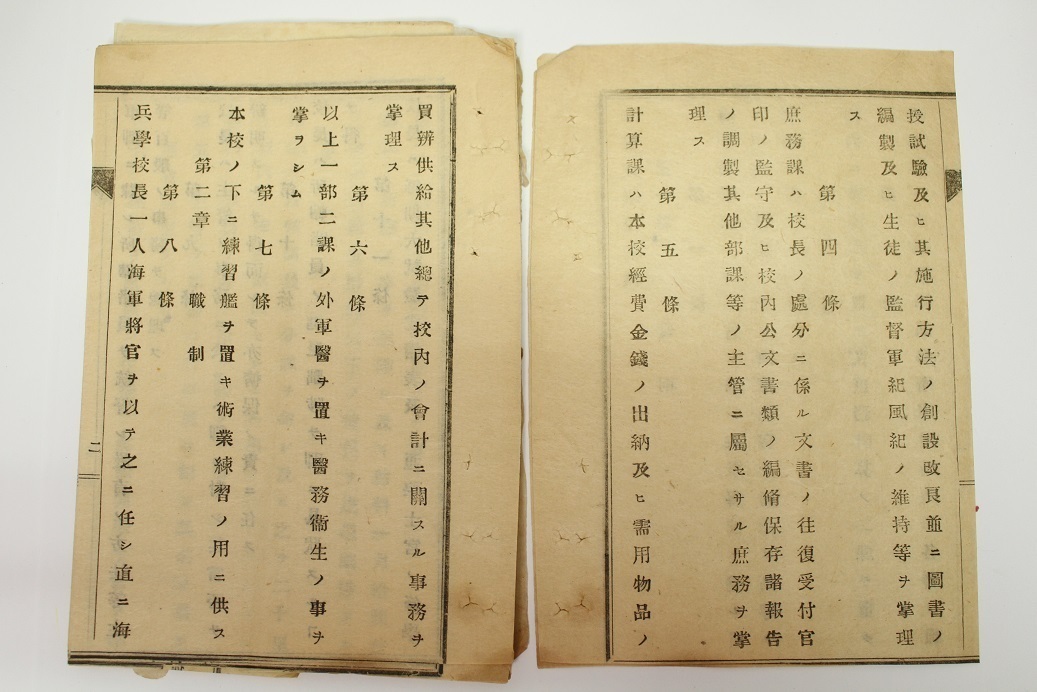 授試驗及ヒ其施行方法ノ創設改良並ニ圖書ノ
編製及ヒ生徒ノ監督軍紀風紀ノ維持等ヲ掌理
ス
第四條
庶務課ハ校長ノ處分ニ係ル文書ノ往復受付官
印ノ監守及ヒ校內公文書類ノ編脩保存諸報告
ノ調製其他部課等ノ主管ニ屬セサル庶務ヲ掌
理ス
第五條
計算課ハ本校經費金錢ノ出納及ヒ需用物品ノ
買辨供給其他總テ校內ノ會計ニ關スル事務ヲ
掌理ス
第六條
以上一部二課ノ外軍醫ヲ置キ醫務衞生ノ事ヲ
掌ヲシム
第七條
本校ノ下ニ練習艦ヲ置キ術業練習ノ用ニ供ス
第二章 職制
第八條
兵學校長一人海軍將官ヲ以テ之ニ任シ直ニ海
二